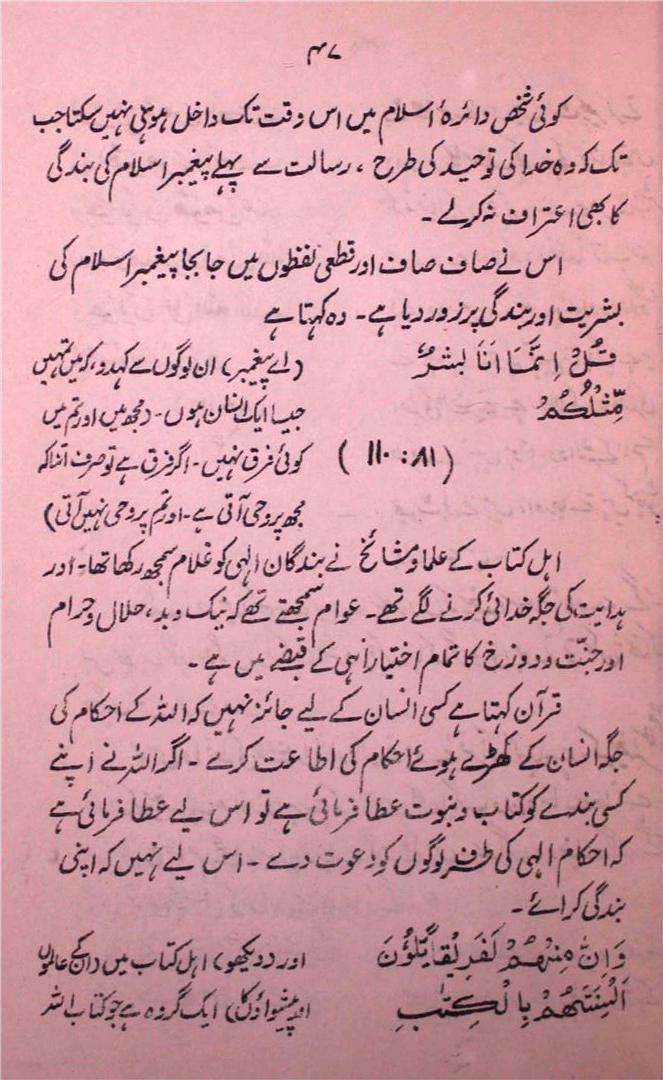 ۴۷
کوئی شخص دائرۂ اسلام میں اس وقت تک داخل ہو ہی نہیں سکتا جب
تک کہ وہ خدا کی توحید کی طرح، رسالت سے پہلے پیغمبر اسلام کی بندگی
کا بھی اعتراف نہ کرلے۔
اس نے صاف صاف اور قطعی لفظوں میں جابجا پیغمبر اسلام کی
بشریت اور بندگی پر زور دیا ہے۔ وہ کہتا ہے
قُلْ اِنَّمَا اَنَا بَشَرٌ (اے پیغمبر) ان لوگوں سے کہدو، کہ میں تمہیں
مِّثْلُكُمْ جیسا ایک انسان ہوں۔ (مجھ میں اور تم میں
(۱۱۰:۸۱) کوئی فرق نہیں۔ اگر فرق ہے تو صرف اتنا کہ
مجھ پر وحی آتی ہے۔ اور تم پر وحی نہیں آتی)
اہل کتاب کے علما و مشائخ نے بندگان الٰہی کو غلام سمجھ رکھا تھا۔ اور
ہدایت کی جگہ خدائی کرنے لگے تھے۔ عوام سمجھتے تھے کہ نیک و بد، حلال و حرام
اور جنّت و دوزخ کا تمام اختیار انہی کے قبضے میں ہے۔
قرآن کہتا ہے کسی انسان کے لیے جائز نہیں کہ اللہ کے احکام کی
جگہ انسان کے گھڑے ہوئے احکام کی اطاعت کرے۔ اگر اللہ نے اپنے
کسی بندے کو کتاب و نبوت عطا فرمائی ہے تو اس لیے عطا فرمائی ہے
کہ احکام الٰہی کی طرف لوگوں کو دعوت دے۔ اس لیے نہیں کہ اپنی
بندگی کرائے۔
وَاِنَّ مِنْهُمْ لَفَرِيْقًا يَّلْوٗنَ اور (دیکھو) اہل کتاب میں (ان کے عالموں
اَلْسِنَتَهُمْ بِالْكِتٰبِ اور پیشواؤں کا) ایک گروہ ہے جو کتاب اللہ